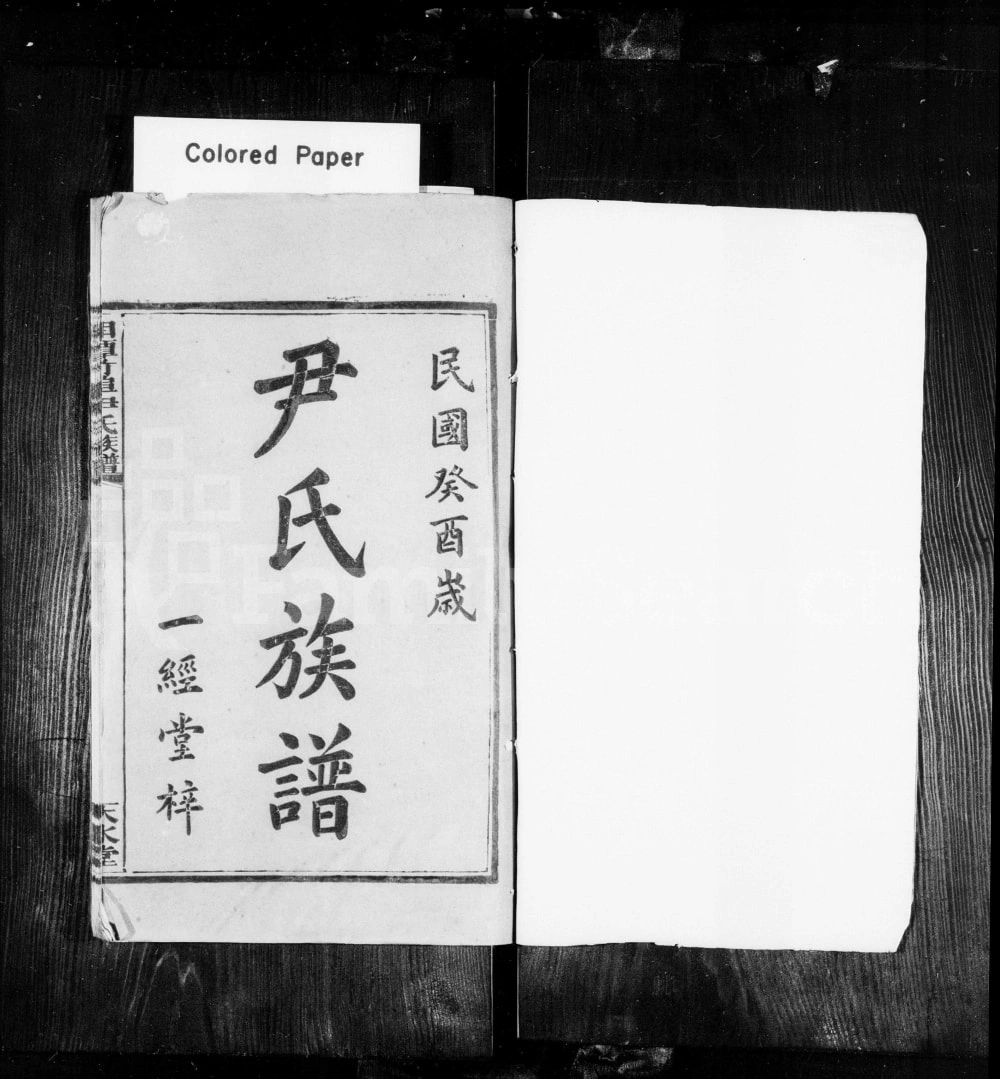 Colored Paper
民國癸酉歲
尹氏族譜
一經堂梓
尹氏族譜
天水堂